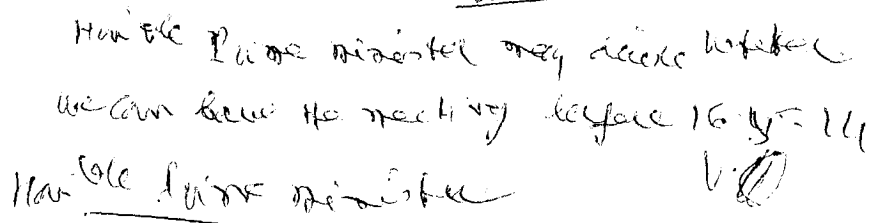 Hon'ble Prime Minister may decide whether
we can have the meeting before 16.5.14
Hon'ble Prime Minister